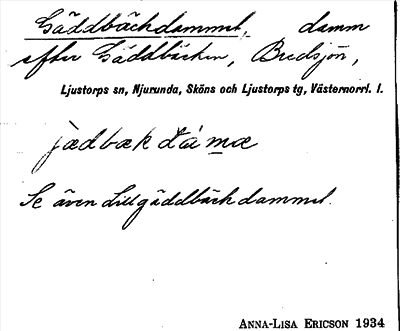 Gäddbäckdammet, damm
efter Gäddbäcken, Bredsjön,
Ljustorps sn, Njurunda, Sköns och Ljustorps tg, Västernorrl. l.
jædbæk dámæ
Se även Lillgäddbäckdammet.
ANNA-LISA ERICSON 1934